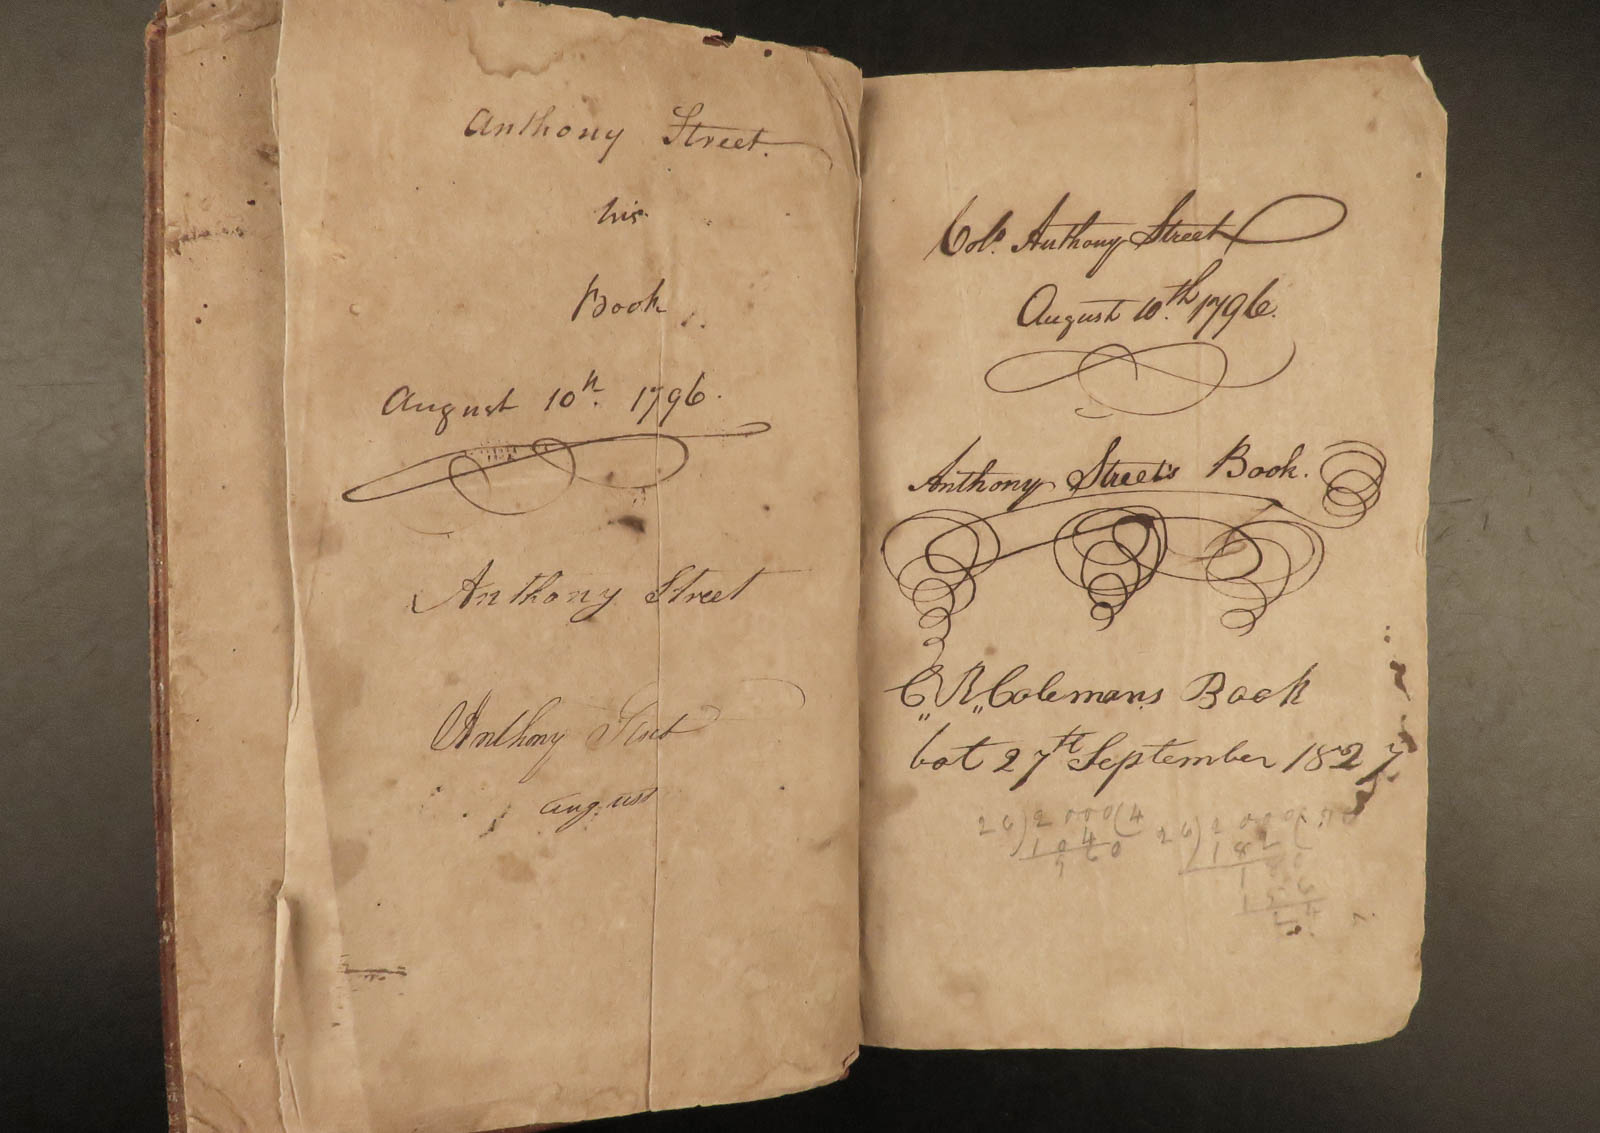 Anthony Street.
his
Book
August 10th. 1796.
Anthony Street
Anthony Street
august
Colo. Anthony Street
August 10.th 1796.
Anthony Street's Book.
C"R"Colemans Book
bot 27th September 1827
26)2000(4 26)2000(
104 182